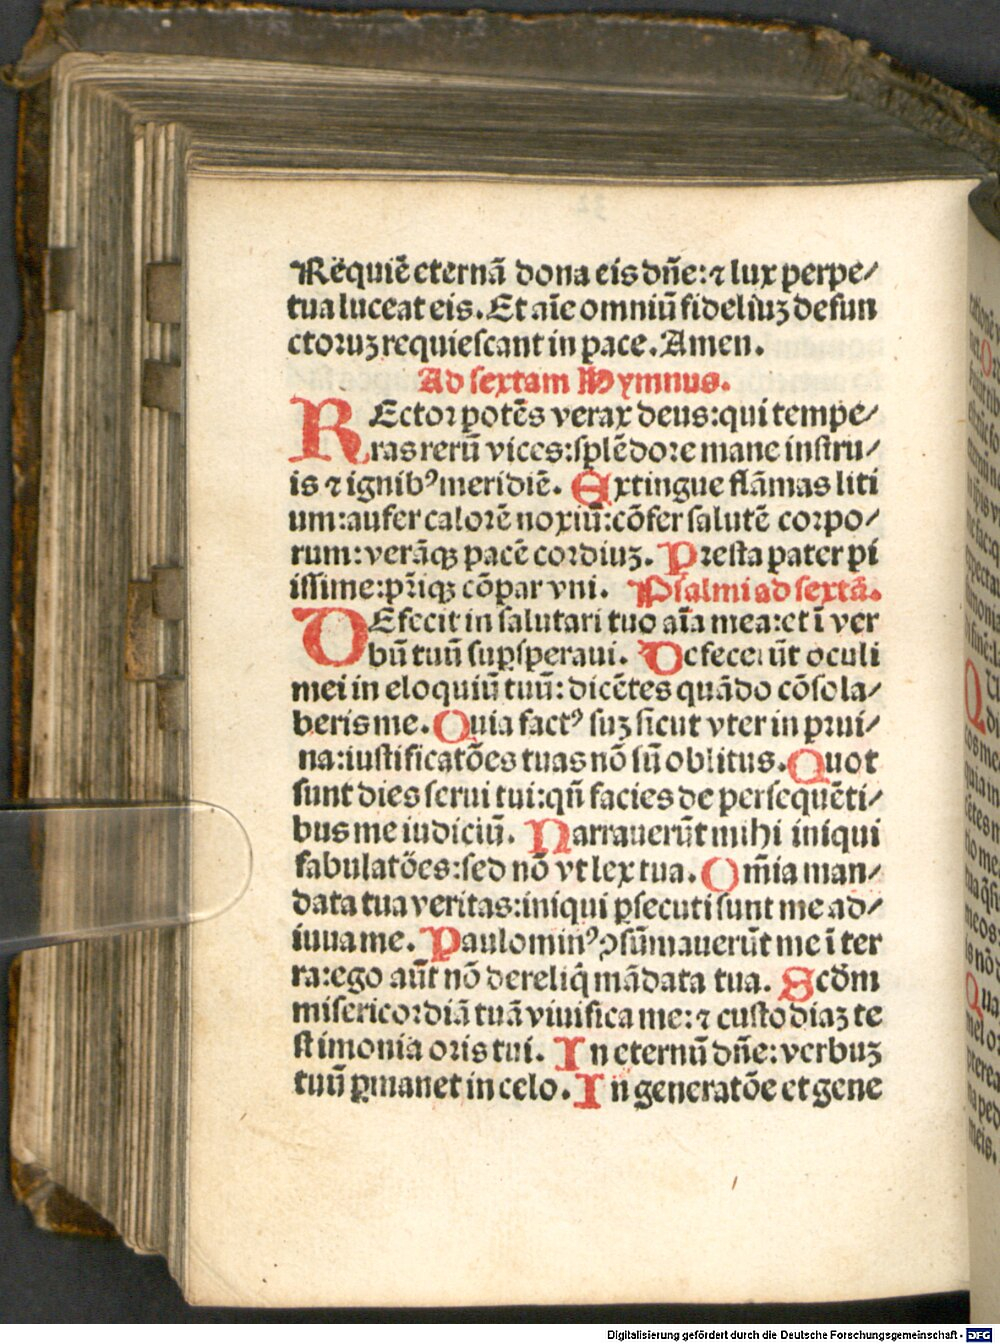 Requiẽ eternã dona eis dñe: ⁊ lux perpe/
tua luceat eis. Et aĩe omniũ fideliuꝫ defun
ctoruꝫ requiescant in pace. Amen.
Ad sextam Hymnus.
REctor potẽs verax deus: qui tempe/
ras rerũ vices: splẽdore mane instru/
is ⁊ ignibꝰ meridiẽ. Extingue flãmas liti
um: aufer calorẽ noxiũ: cõfer salutẽ corpo/
rum: verãqꝫ pacẽ cordiuꝫ. Presta pater pi
issime: pr̃iqꝫ cõpar vni. Psalmi ad sextã.
DEfecit in salutari tuo aĩa mea: et ĩ ver
bũ tuũ suꝑsperaui. Defecerũt oculi
mei in eloquiũ tuũ: dicẽtes quãdo cõsola/
beris me. Quia factꝰ suꝫ sicut vter in prui/
na: iustificatões tuas nõ sũ oblitus. Quot
sunt dies serui tui: qñ facies de persequẽti/
bus me iudiciũ. Narrauerũt mihi iniqui
fabulatões: sed nõ vt lex tua. Om̃ia man/
data tua veritas: iniqui ꝑsecuti sunt me ad/
iuua me. Paulominꝰ ꝯsũmauerũt me ĩ ter
ra: ego aũt nõ dereliq̃ mãdata tua. Scđm
misericordiã tuã viuifica me: ⁊ custodiaꝫ te
stimonia oris tui. In eternũ dñe: verbuꝫ
tuũ ꝑmanet in celo. In generatõe et gene
Digitalisierung gefördert durch die Deutsche Forschungsgemeinschaft - DFG